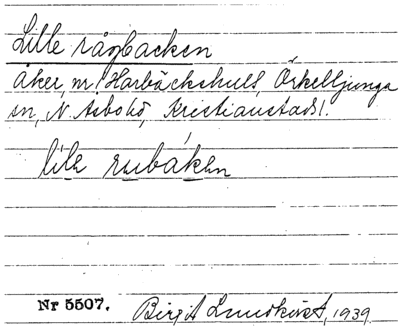 Lille rågbacken
åker, m. Harbäckshult, Örkelljunga
sn, N. Åsbo hd, Kristianstads l.
lile rubåken
Nr 5507. Birgit Lundkvist, 1939